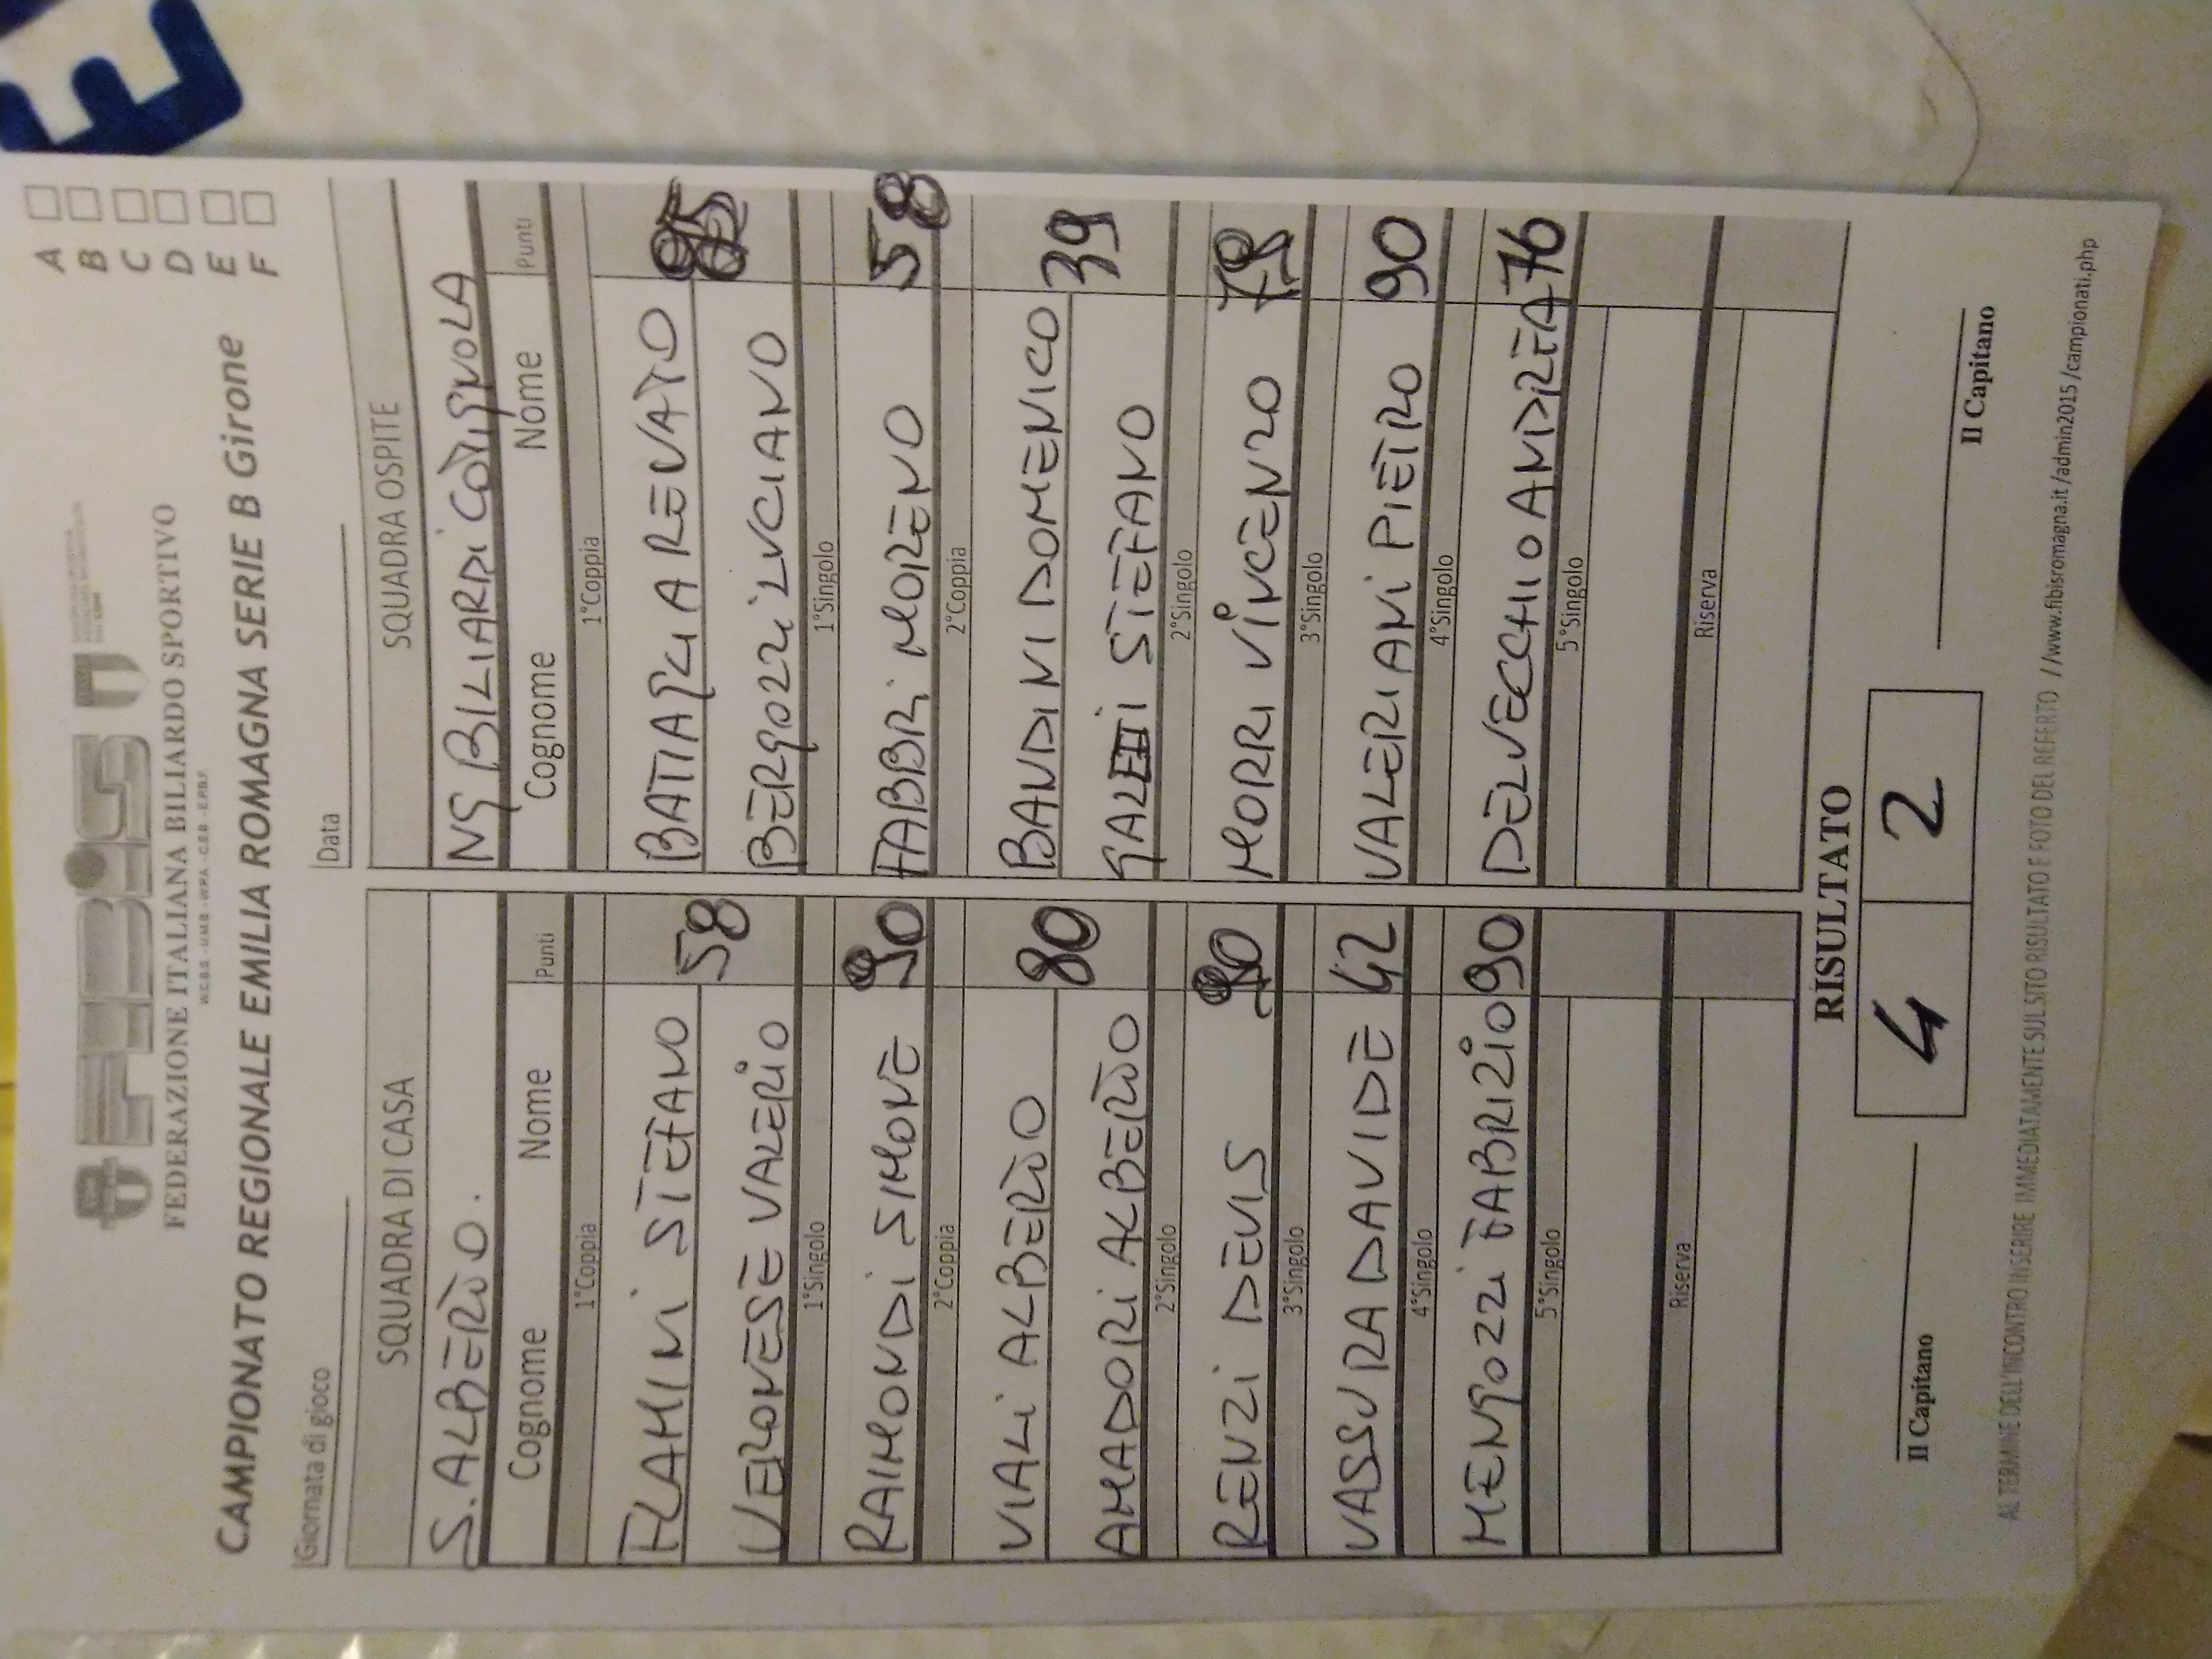 FEDERAZIONE ITALIANA BILIARDO SPORTIVO
W.C.B.S. - U.M.B. - W.P.A. - C.E.B. - E.P.B.F.
CAMPIONATO REGIONALE EMILIA ROMAGNA SERIE B Girone
A
B
C
D
E
F
Giornata di gioco
Data
SQUADRA DI CASA
S. ALBERTO.
Cognome Nome Punti
1°Coppia
FLAMINI STEFANO
VERONESE VALERIO
58
1°Singolo
RAIMONDI SIMONE 90
2°Coppia
VIALI ALBERTO
AMADORI ALBERTO
80
2°Singolo
RENZI DEVIS 90
3°Singolo
VASSURA DAVIDE 42
4°Singolo
MENGOZZI FABRIZIO 90
5°Singolo
Riserva
SQUADRA OSPITE
NG BILIARDI COTIGNOLA
Cognome Nome Punti
1°Coppia
BATTAGLIA RENATO
BERGOZZI LUCIANO
1°Singolo
FABBRI MORENO 58
2°Coppia
BANDINI DOMENICO
GALETTI STEFANO
39
2°Singolo
MORRI VINCENZO
3°Singolo
VALERIANI PIETRO 90
4°Singolo
DELVECCHIO ANDREA 76
5°Singolo
Riserva
RISULTATO
4 2
Il Capitano
Il Capitano
AL TERMINE DELL'INCONTRO INSERIRE IMMEDIATAMENTE SUL SITO RISULTATO E FOTO DEL REFERTO //www.fibisromagna.it/admin2015/campionati.php